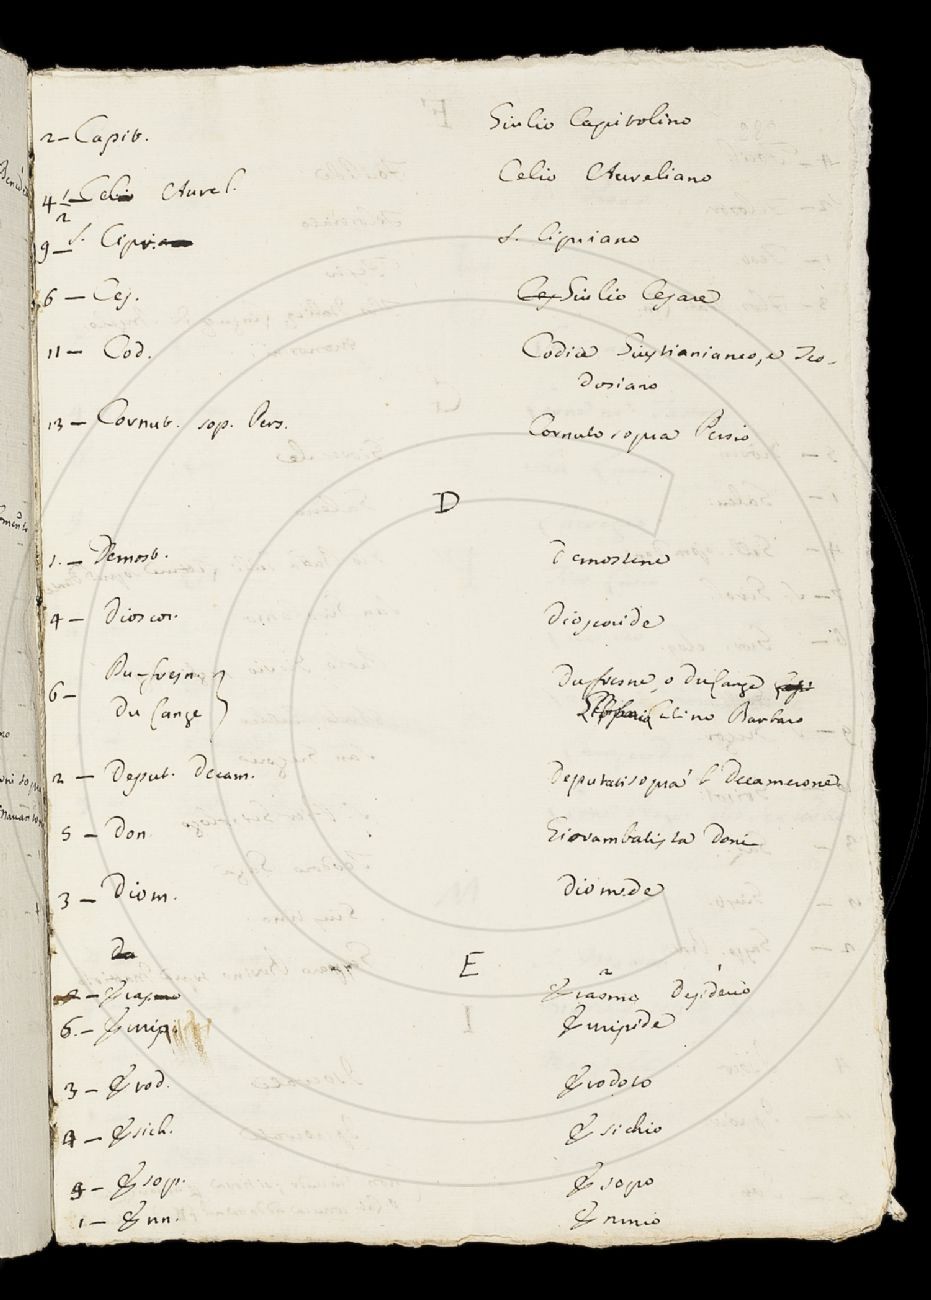 2 – Capit. Giulio Capitolino
4 – Celio Aurel. Celio Aureliano
2
9 – S. Cipria S. Cipriano
6 – Ces. Ces Giulio Cesare
11 – Cod. Codice Giustinianeo, e Teo-
dosiano
13 – Cornut. sop. Pers. Cornuto sopra Persio
D
1. – Demost. Demostene
4 – Dioscor. Dioscoride
6 – Du-fresn. Du fresne, o Du Cange
Du Cange Latino Barbaro
2 – Deput. Decam. Deputati sopra il Decamerone
5 – Don Giovambatista Doni
3 – Diom. Diomede
Da
E
2 – Erasmo Erasmo Desiderio
6. – Eurip. Euripide
3 – Erod. Erodoto
4 – Esich. Esichio
9 – Esop. Esopo
1 – Enn. Ennio